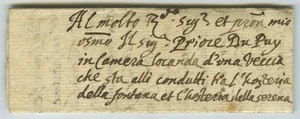 Al molto R.do Sig.r et pron mio
osmo Il sig.r Priore Du Puy
in Camera locanda d'una Veccia
che sta alli condutti tra l'hosteria
della fontana et l'hosteria della serena